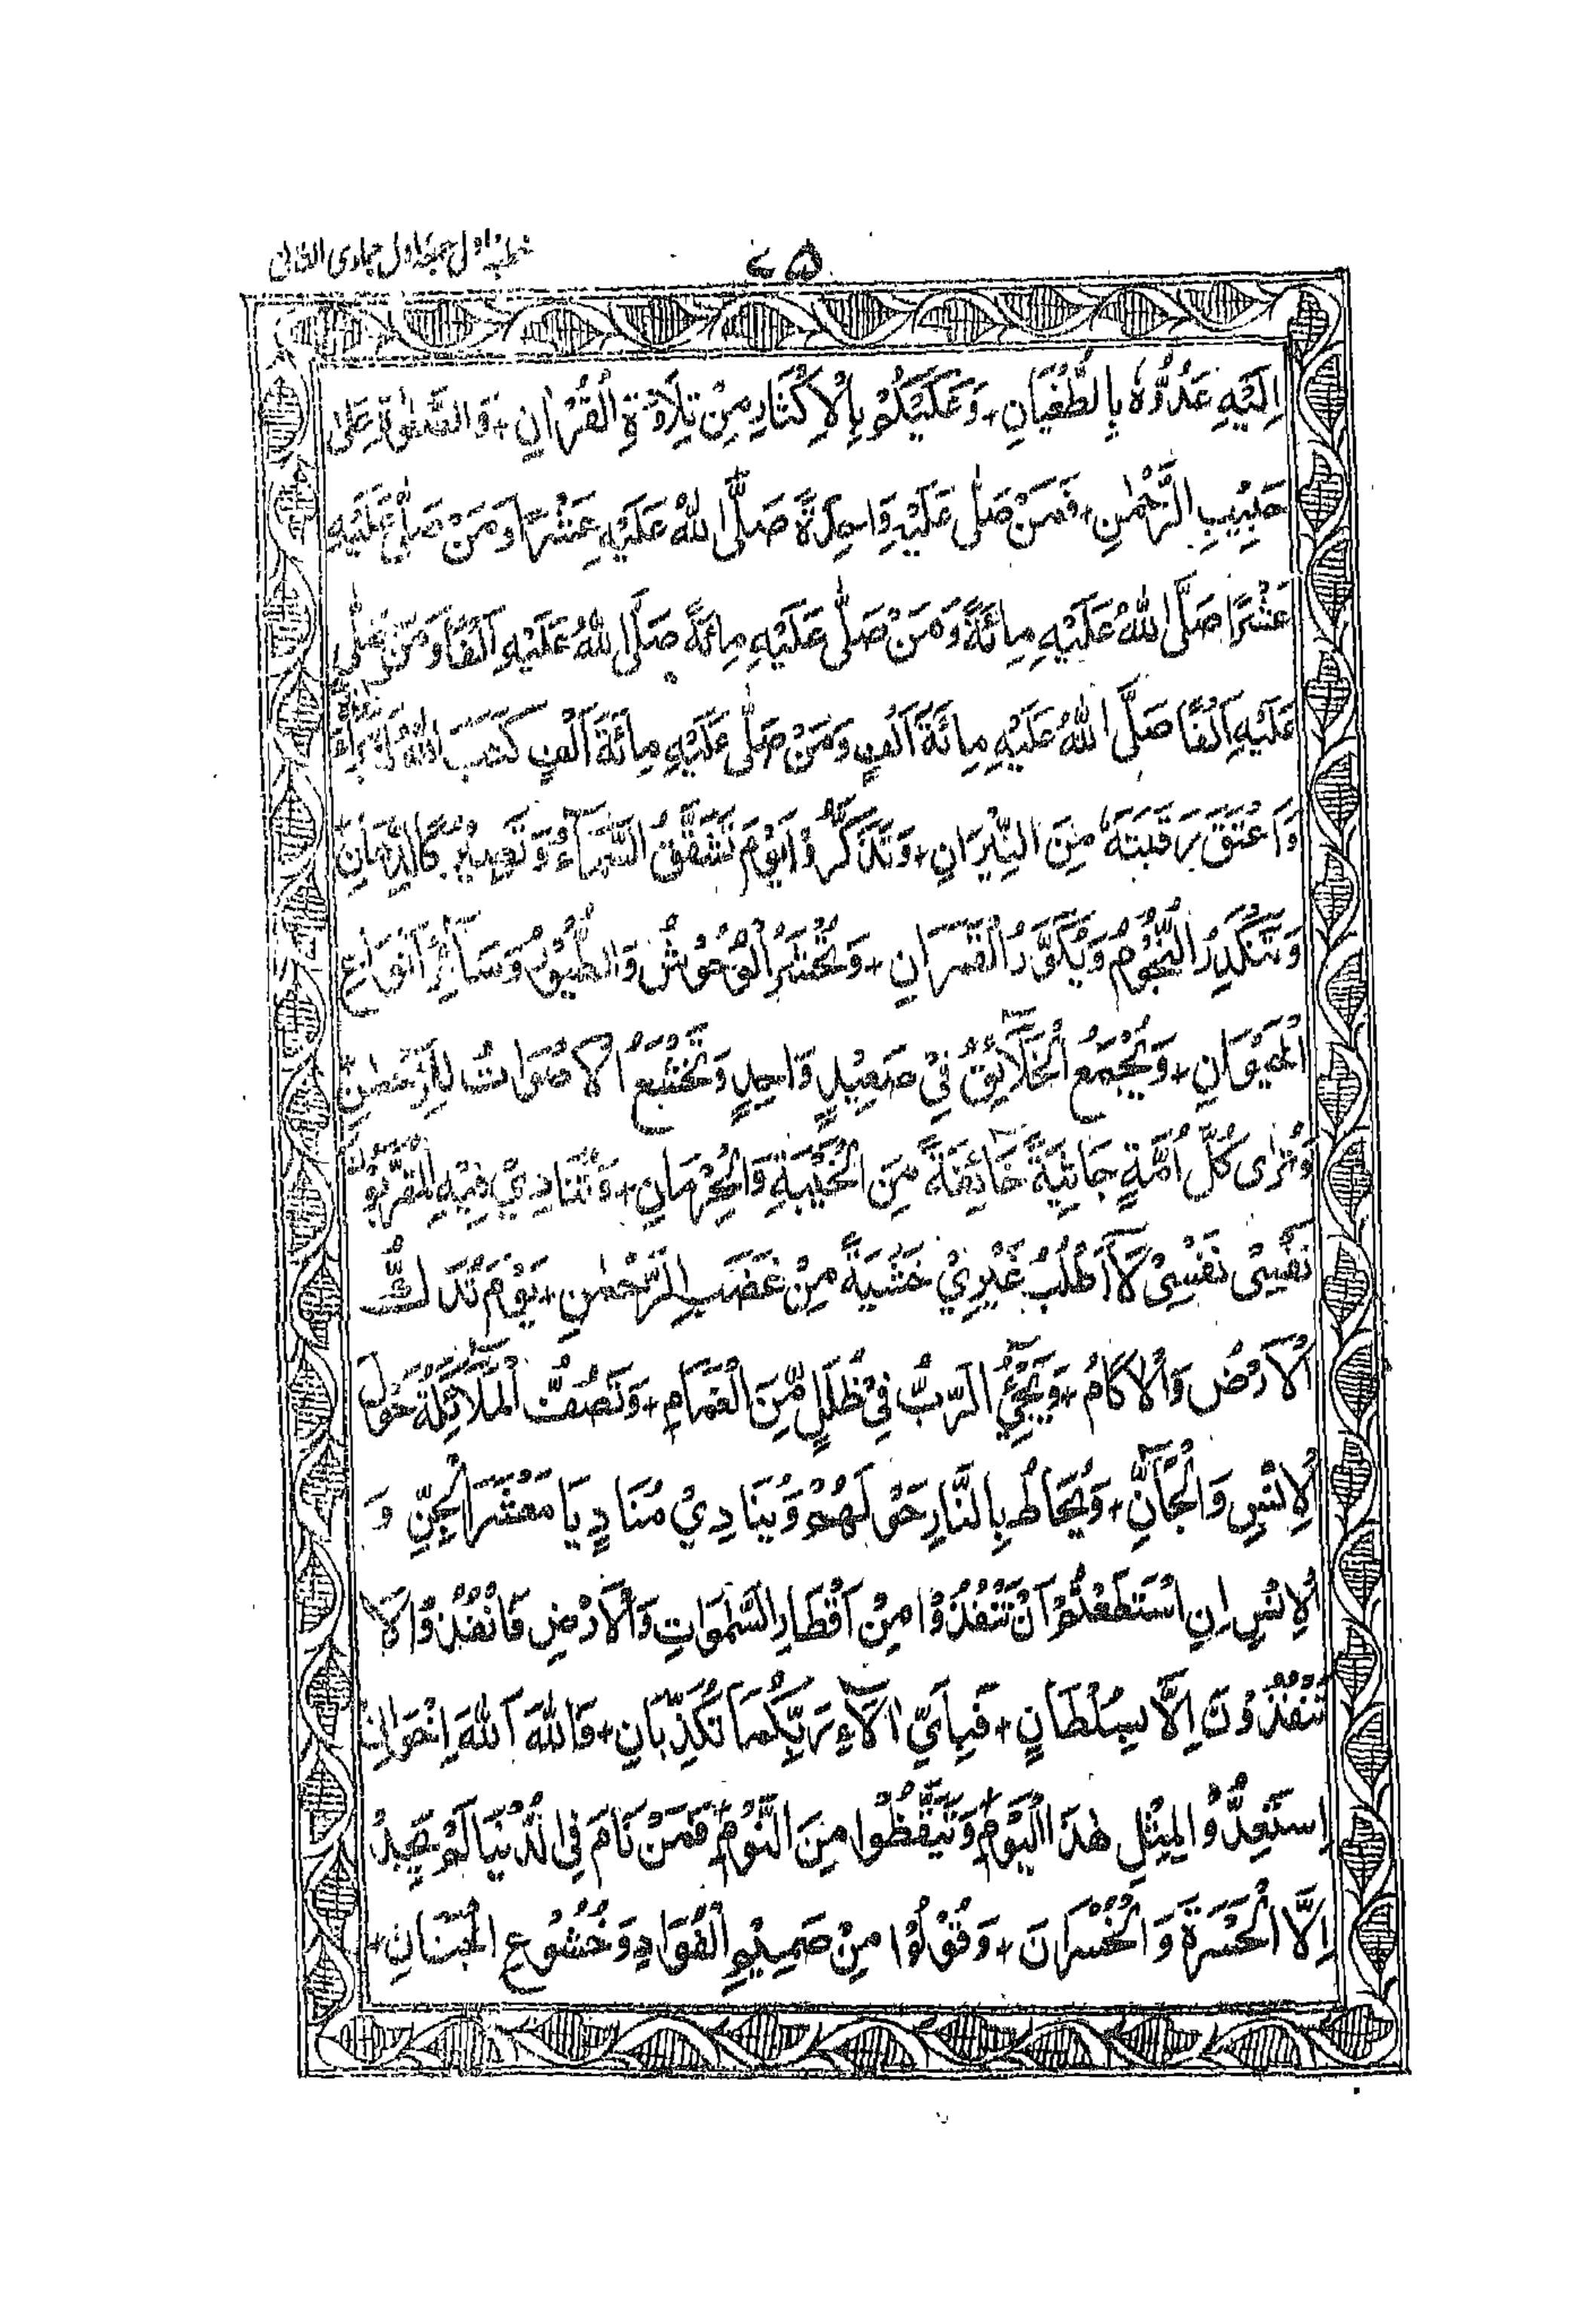 ۷۵
خطبۂ اول جمعۂ اول جمادی الثانی
اِلَيْهِ عَدُوُّهٗ بِالطُّغْيَانِ + وَعَلَيْكُمْ بِالْاِكْثَارِ مِنْ تِلَاوَةِ الْقُرْاٰنِ + وَالصَّلٰوةِ عَلٰى
حَبِيْبِ الرَّحْمٰنِ + فَمَنْ صَلّٰى عَلَيْهِ وَاحِدَةً صَلَّى اللّٰهُ عَلَيْهِ عَشْرًا وَمَنْ صَلّٰى عَلَيْهِ
عَشْرًا صَلَّى اللّٰهُ عَلَيْهِ مِائَةً وَمَنْ صَلّٰى عَلَيْهِ مِائَةً صَلَّى اللّٰهُ عَلَيْهِ اَلْفًا وَمَنْ صَلّٰى
عَلَيْهِ اَلْفًا صَلَّى اللّٰهُ عَلَيْهِ مِائَةَ اَلْفٍ وَمَنْ صَلّٰى عَلَيْهِ مِائَةَ اَلْفٍ كَتَبَ اللّٰهُ لَهٗ بَرَاءَةً
وَاَعْتَقَ رَقَبَتَهٗ مِنَ النِّيْرَانِ + وَتَذَكَّرُوْا يَوْمَ تَشَقَّقُ السَّمَآءُ وَتَصِيْرُ كَالدِّهَانِ
وَتَنْكَدِرُ النُّجُوْمُ وَيُكَوَّرُ الْقَمَرَانِ + وَتُحْشَرُ الْوُحُوْشُ وَالطُّيُوْرُ وَسَآئِرُ اَنْوَاعِ
الْحَيْوَانِ + وَيُجْمَعُ الْخَلَآئِقُ فِيْ صَعِيْدٍ وَّاحِدٍ وَتَخْشَعُ الْاَصْوَاتُ لِلرَّحْمٰنِ
وَتُرٰى كُلُّ اُمَّةٍ جَاثِيَةً خَائِفَةً مِنَ الْخَيْبَةِ وَالْحِرْمَانِ + وَتُنَادِيْ فِيْهِ الْمُقَرَّبُوْنَ
نَفْسِىْ نَفْسِىْ لَآ اَطْلُبُ غَيْرِيْ خَشْيَةً مِنْ غَضَبِ الرَّحْمٰنِ + يَوْمَ تُدَكُّ
الْاَرْضُ وَالْاٰكَامُ + وَيَجِيْٓءُ الرَّبُّ فِىْ ظُلَلٍ مِّنَ الْغَمَامِ + وَتَصُفُّ الْمَلَآئِكَةُ حَوْلَ
الْاِنْسِ وَالْجَآنِّ + وَيُحَاطُ بِالنَّارِ حَوْلَهُمْ وَيُنَادِيْ مُنَادٍ يَا مَعْشَرَ الْجِنِّ وَ
الْاِنْسِ اِنِ اسْتَطَعْتُمْ اَنْ تَنْفُذُوْا مِنْ اَقْطَارِ السَّمٰوَاتِ وَالْاَرْضِ فَانْفُذُوْا لَا
تَنْفُذُوْنَ اِلَّا بِسُلْطَانٍ + فَبِاَيِّ اٰلَآءِ رَبِّكُمَا تُكَذِّبَانِ + فَاللّٰهَ اَللّٰهَ اِخْوَانِ
اِسْتَعِدُّوْا لِمِثْلِ هٰذَا الْيَوْمِ وَتَيَقَّظُوْا مِنَ النَّوْمِ فَمَنْ نَامَ فِى الدُّنْيَا لَمْ يَجِدْ
اِلَّا الْحَسْرَةَ وَالْخُسْرَانَ + وَقُوْلُوْا مِنْ صَمِيْمِ الْفُؤَادِ وَخُشُوْعِ الْجَنَانِ +